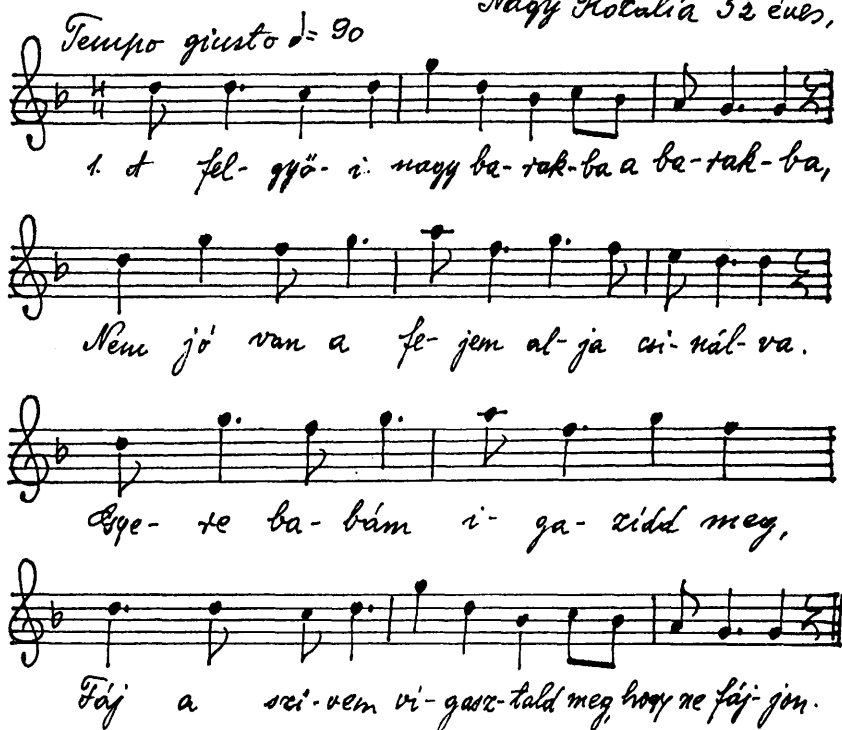 Nagy Rozália 32 éves,
Tempo giusto ♩= 90
4 4
1. A fel- győ- i nagy ba- rak-ba a ba-rak-ba,
Nem jó van a fe- jem al- ja csi- nál- va.
Gye- re ba- bám i- ga- zídd meg,
Fáj a szi- vem vi- gasz-tald meg, hogy ne fáj- jon.